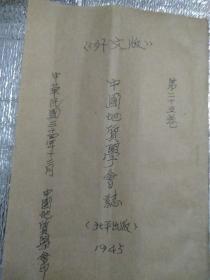 《外文版》
第二十五卷
中國地質學會誌
(北平出版)
1945
中華民國三十四年十二月 中國地質學會印